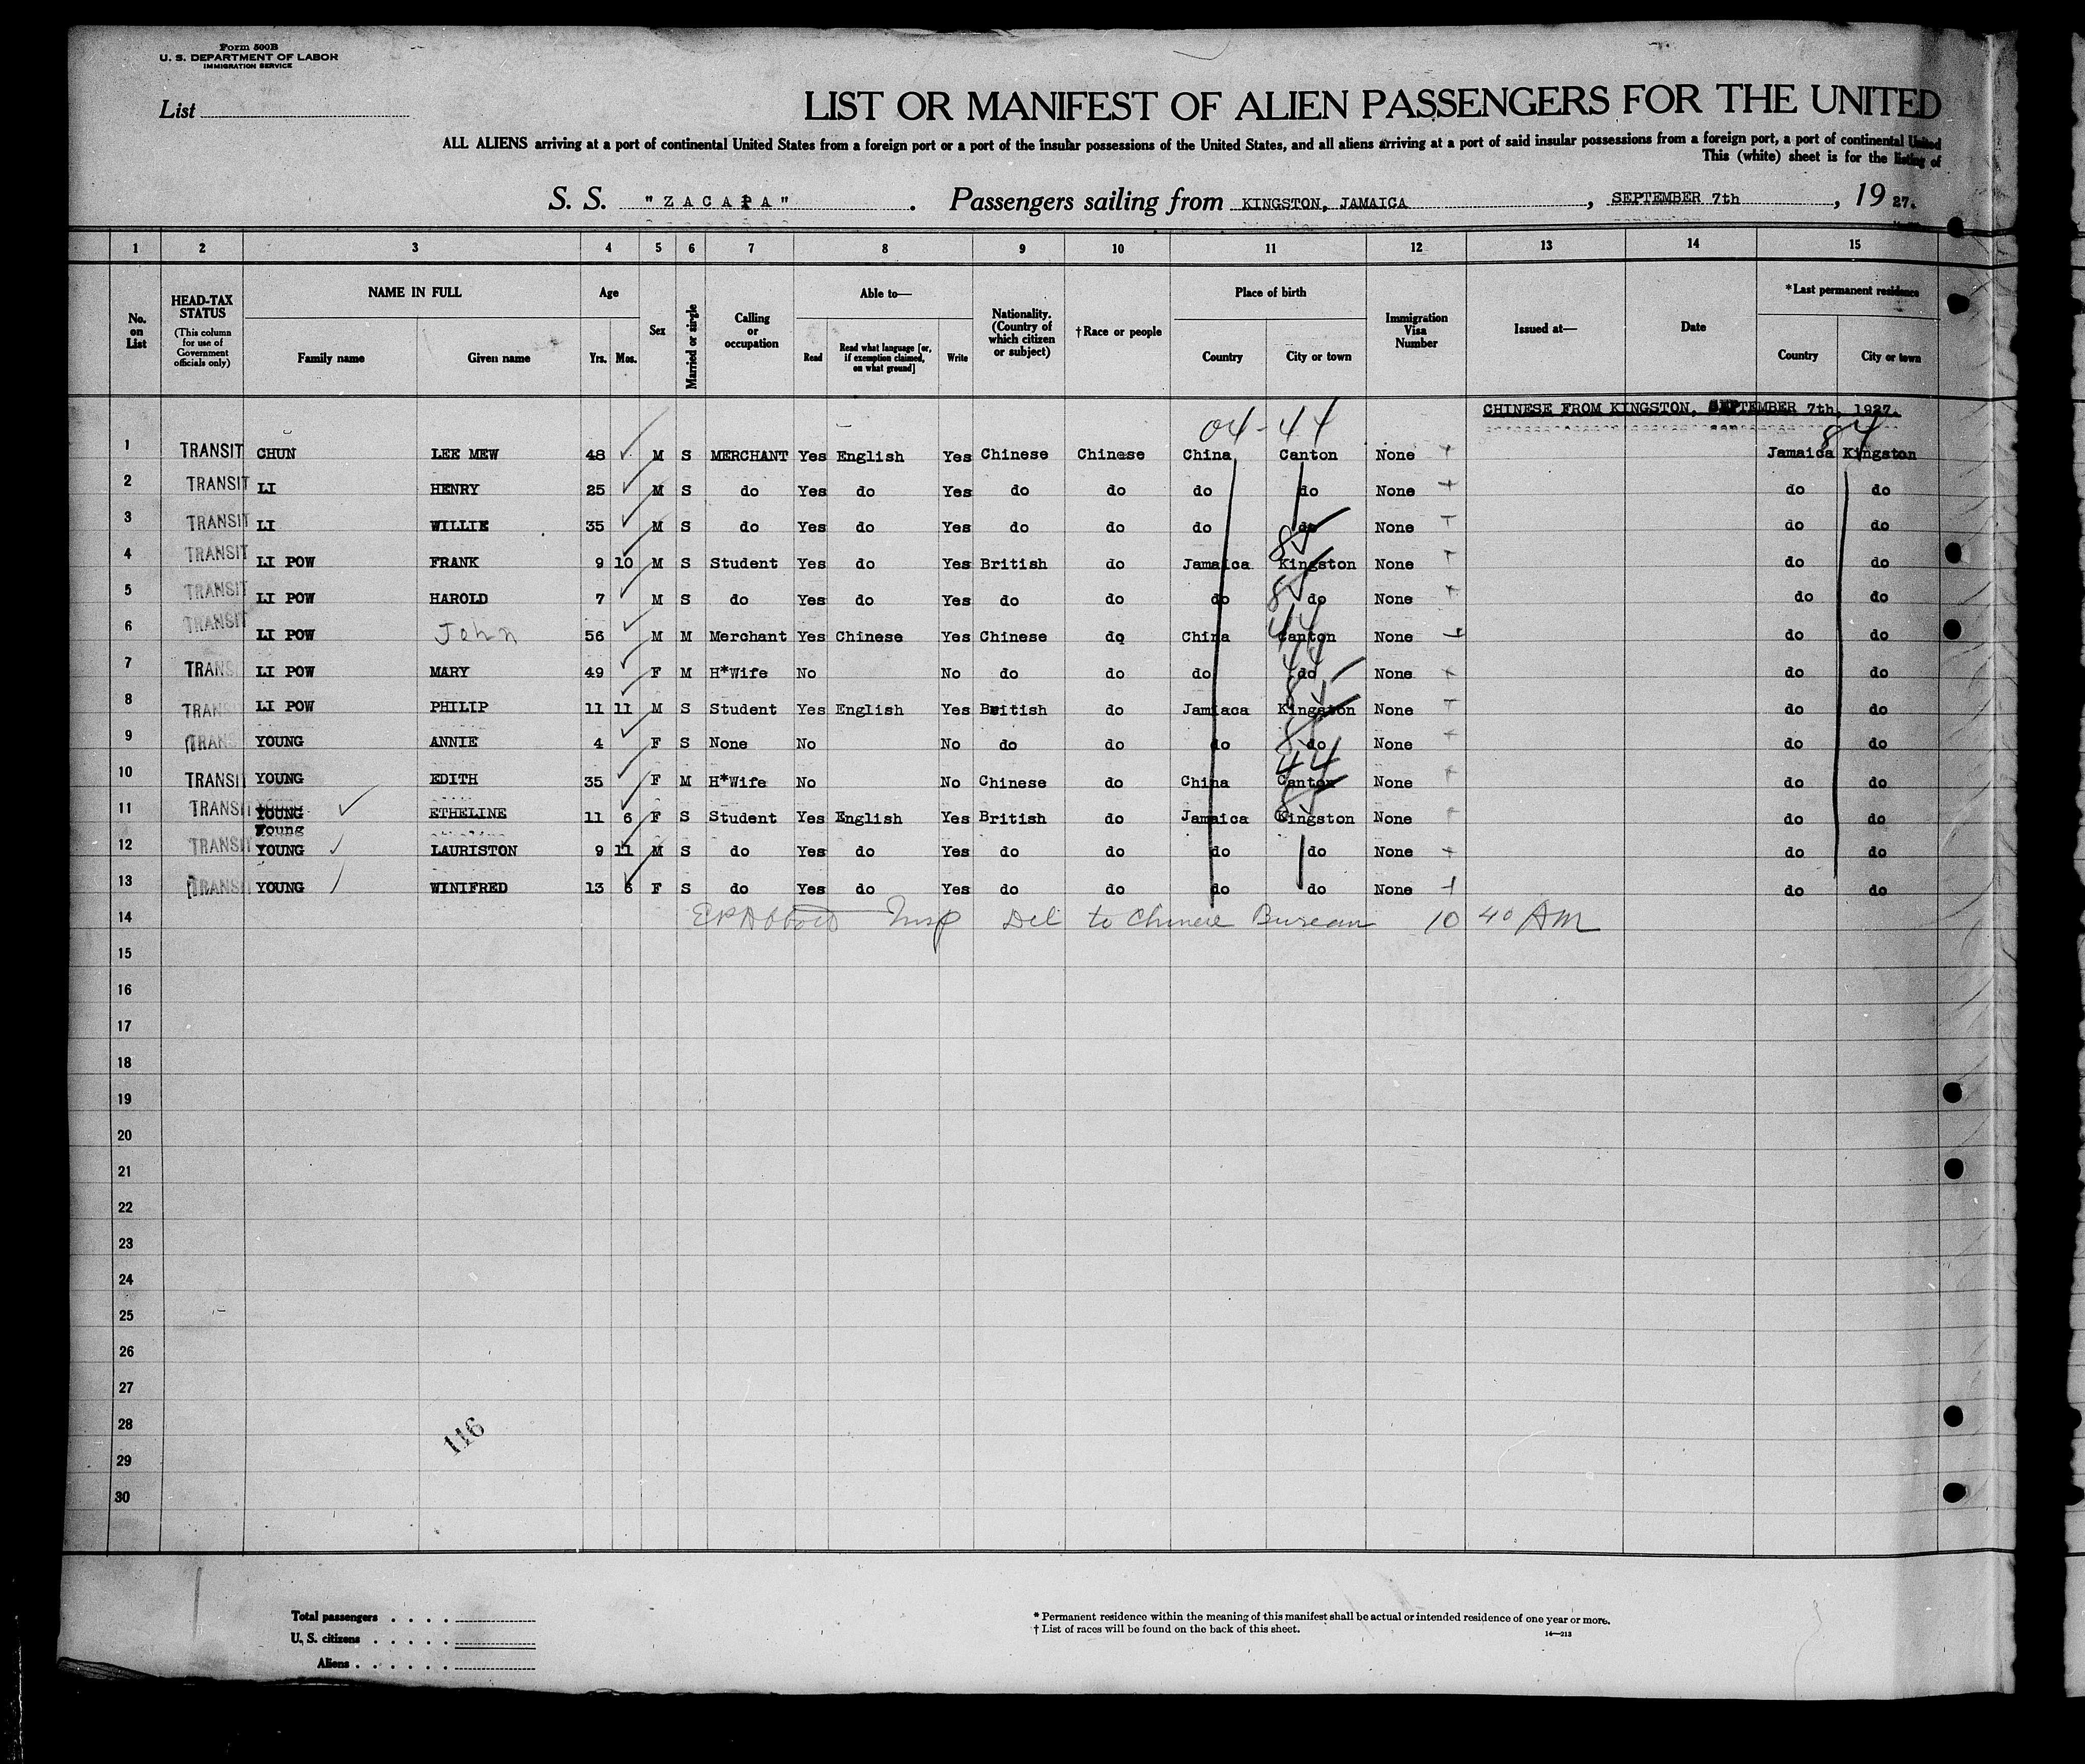 Form 500B
U. S. DEPARTMENT OF LABOR
IMMIGRATION SERVICE
List
LIST OR MANIFEST OF ALIEN PASSENGERS FOR THE UNITED
ALL ALIENS arriving at a port of continental United States from a foreign port or a port of the insular possessions of the United States, and all aliens arriving at a port of said insular possessions from a foreign port, a port of continental United
This (white) sheet is for the listing of
S. S. "ZACAPA". Passengers sailing from KINGSTON, JAMAICA, SEPTEMBER 7th, 1927.
1 2 3 4 5 6 7 8 9 10 11 12 13 14 15
No. on List
HEAD-TAX STATUS (This column for use of Government officials only)
NAME IN FULL Family name Given name
Age Yrs. Mos.
Sex
Married or single
Calling or occupation
Able to— Read Read what language [or, if exemption claimed, on what ground] Write
Nationality. (Country of which citizen or subject)
†Race or people
Place of birth Country City or town
Immigration Visa Number
Issued at—
Date
*Last permanent residence Country City or town
CHINESE FROM KINGSTON, SEPTEMBER 7th, 1927.
04-44 84
1 TRANSIT CHUN LEE MEW 48 M S MERCHANT Yes English Yes Chinese Chinese China Canton None Jamaica Kingston
2 TRANSIT LI HENRY 25 M S do Yes do Yes do do do do None do do
3 TRANSIT LI WILLIE 35 M S do Yes do Yes do do do do None do do
4 TRANSIT LI POW FRANK 9 10 M S Student Yes do Yes British do Jamaica Kingston None do do
5 TRANSIT LI POW HAROLD 7 M S do Yes do Yes do do do do None do do
6 TRANSIT LI POW John 56 M M Merchant Yes Chinese Yes Chinese do China Canton None do do
7 TRANS LI POW MARY 49 F M H*Wife No No do do do do None do do
8 TRAN LI POW PHILIP 11 11 M S Student Yes English Yes British do Jamiaca Kingston None do do
9 TRANS YOUNG ANNIE 4 F S None No No do do do do None do do
10 TRANSIT YOUNG EDITH 35 F M H*Wife No No Chinese do China Canton None do do
11 TRANSI YOUNG ETHELINE 11 6 F S Student Yes English Yes British do Jamaica Kingston None do do
Young
12 TRANSIT YOUNG LAURISTON 9 11 M S do Yes do Yes do do do do None do do
13 TRANSI YOUNG WINIFRED 13 6 F S do Yes do Yes do do do do None do do
14 Insp Del to Chinese Bureau 10 40 AM
15
16
17
18
19
20
21
22
23
24
25
26
27
28
116
29
30
Total passengers . . . .
U. S. citizens . . . . .
Aliens . . . . . .
* Permanent residence within the meaning of this manifest shall be actual or intended residence of one year or more.
† List of races will be found on the back of this sheet.
14—213